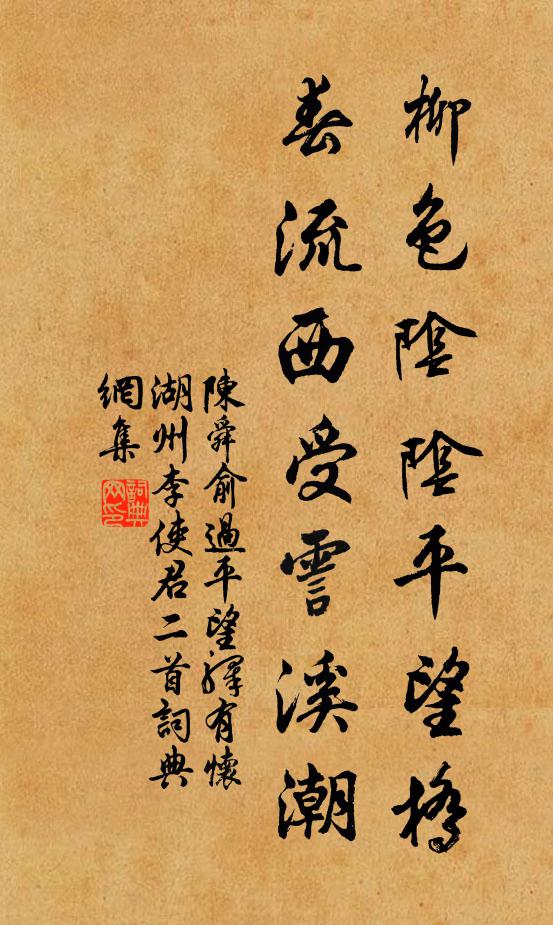 柳色陰陰平望橋
春流西受霅溪潮
陳舜俞過平望驛有懷
湖州李使君二首詞典
網集
詞典網印